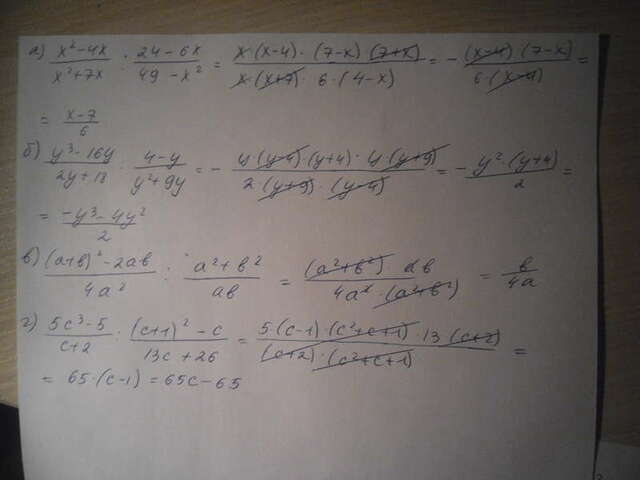 а) (x²-4x)/(x²+7x) : (24-6x)/(49-x²) = (x·(x-4)·(7-x)(7+x))/(x·(x+7)·6·(4-x)) = -((x-4)(7-x))/(6·(x-4)) =
= (x-7)/6
б) (y³-16y)/(2y+18) : (4-y)/(y²+9y) = -(y·(y-4)·(y+4)·y·(y+9))/(2·(y+9)·(y-4)) = -(y²·(y+4))/2 =
= (-y³-4y²)/2
в) ((a+b)²-2ab)/(4a²) : (a²+b²)/(ab) = ((a²+b²)ab)/(4a²·(a²+b²)) = b/(4a)
г) (5c³-5)/(c+2) : ((c+1)²-c)/(13c+26) = (5(c-1)·(c²+c+1)·13(c+2))/((c+2)·(c²+c+1)) =
= 65·(c-1) = 65c-65